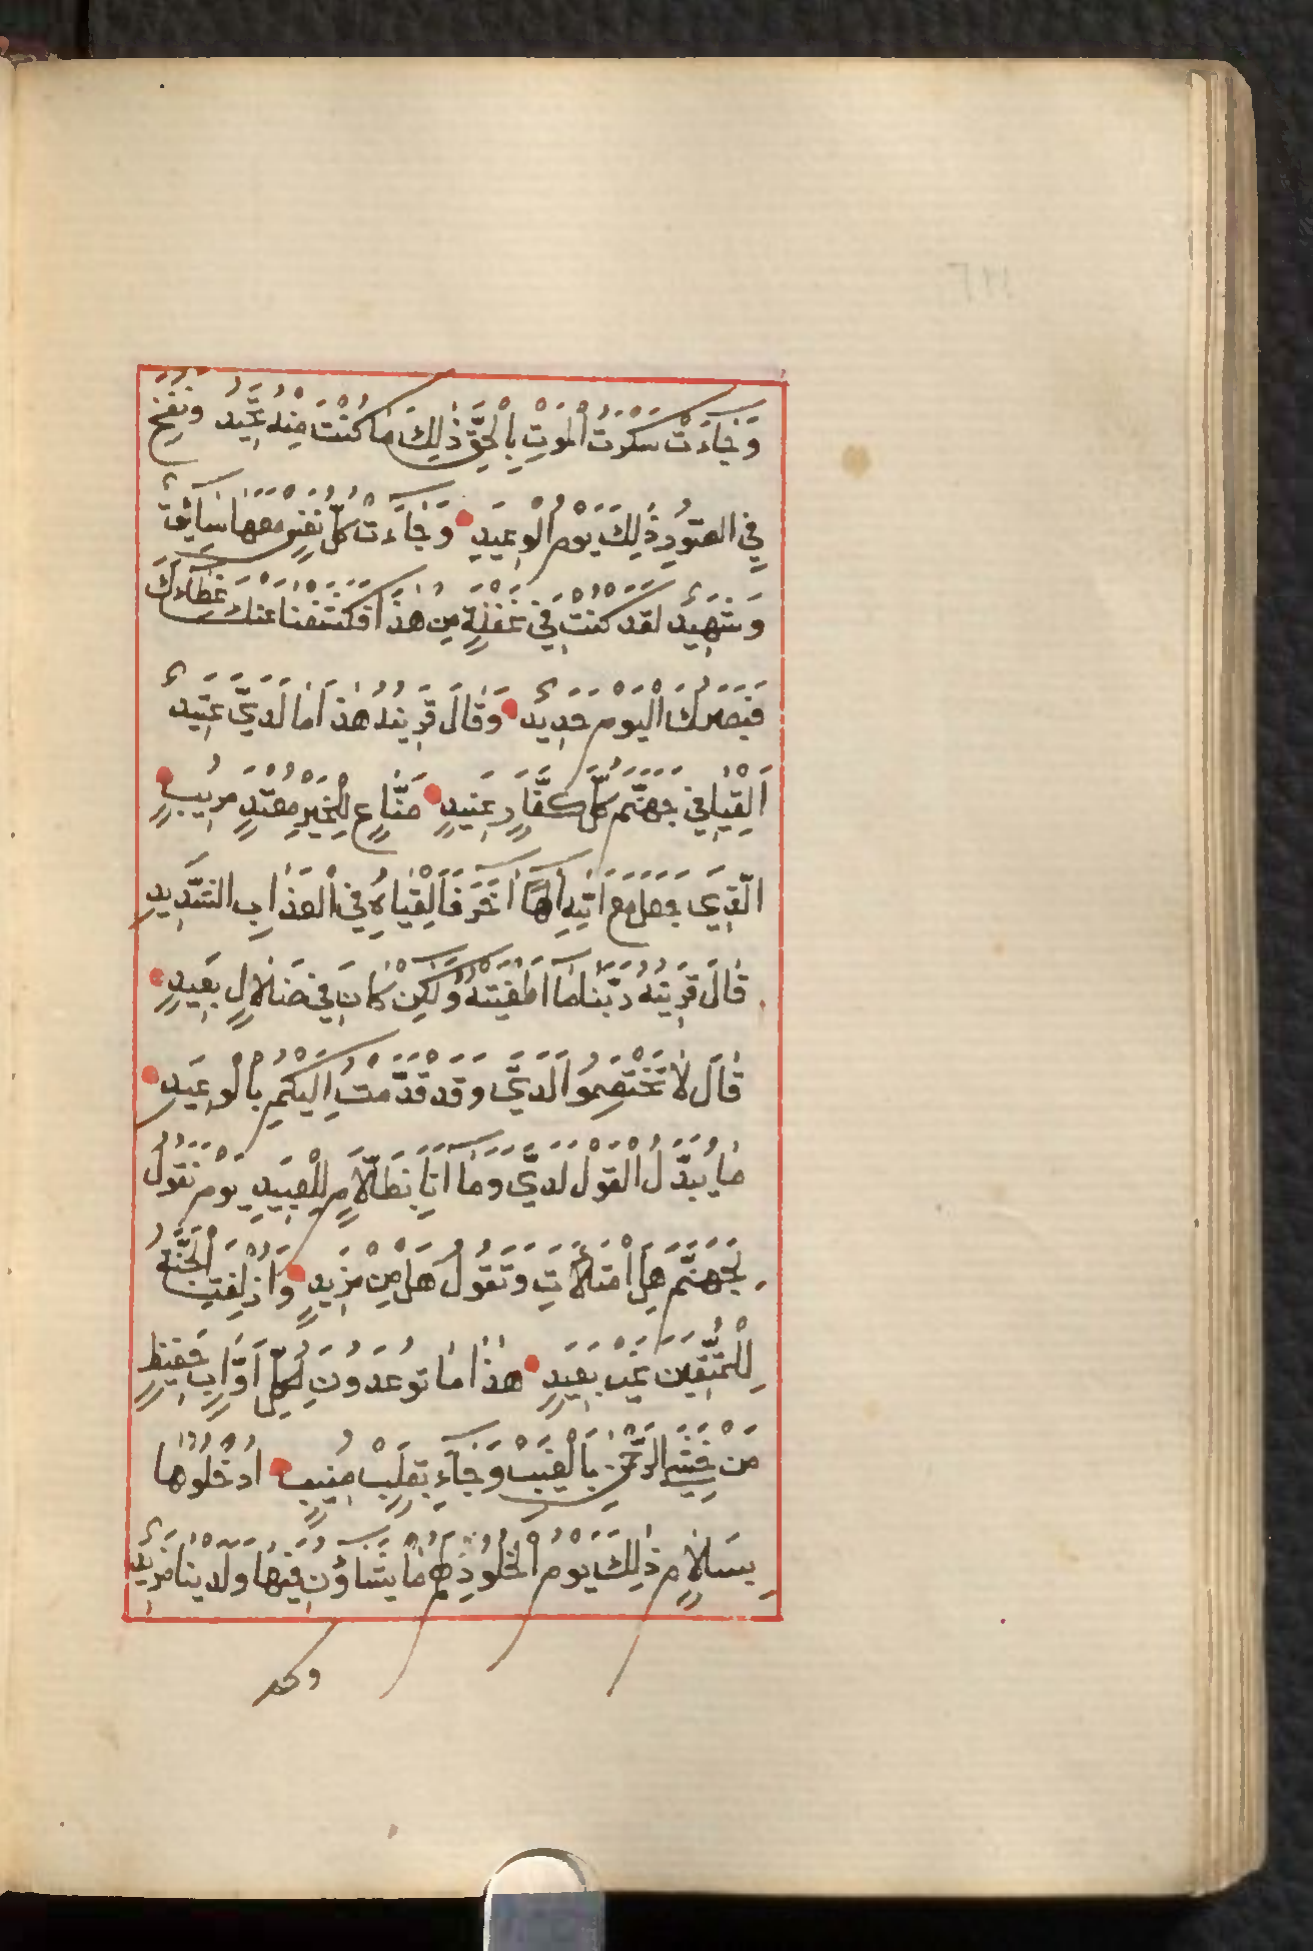 وَجَآءَتْ سَكْرَتُ الْمَوْتِ بِالْحَقِّ ذٰلِكَ مَا كُنْتَ مِنْهُ تَحِيْدُ وَنُفِخَ
فِي الصُّوْرِ ذٰلِكَ يَوْمُ الْوَعِيْدِ وَجَآءَتْ كُلُّ نَفْسٍ مَعَهَا سَآئِقٌ
وَشَهِيْدٌ لَقَدْ كُنْتَ فِيْ غَفْلَةٍ مِنْ هٰذَا فَكَشَفْنَا عَنْكَ غِطَآءَكَ
فَبَصَرُكَ الْيَوْمَ حَدِيْدٌ وَقَالَ قَرِيْنُهُ هٰذَا مَا لَدَيَّ عَتِيْدٌ
اَلْقِيَا فِيْ جَهَنَّمَ كُلَّ كَفَّارٍ عَنِيْدٍ مَنَّاعٍ لِلْخَيْرِ مُعْتَدٍ مُرِيْبٍ
الَّذِيْ جَعَلَ مَعَ اللّٰهِ اِلٰهًا اٰخَرَ فَاَلْقِيَاهُ فِي الْعَذَابِ الشَّدِيْدِ
قَالَ قَرِيْنُهُ رَبَّنَا مَآ اَطْغَيْتُهُ وَلٰكِنْ كَانَ فِيْ ضَلَالٍ بَعِيْدٍ
قَالَ لَا تَخْتَصِمُوْا لَدَيَّ وَقَدْ قَدَّمْتُ اِلَيْكُمْ بِالْوَعِيْدِ
مَا يُبَدَّلُ الْقَوْلُ لَدَيَّ وَمَآ اَنَا بِظَلَّامٍ لِلْعَبِيْدِ يَوْمَ نَقُوْلُ
لِجَهَنَّمَ هَلِ امْتَلَأْتِ وَتَقُوْلُ هَلْ مِنْ مَزِيْدٍ وَاُزْلِفَتِ الْجَنَّةُ
لِلْمُتَّقِيْنَ غَيْرَ بَعِيْدٍ هٰذَا مَا تُوْعَدُوْنَ لِكُلِّ اَوَّابٍ حَفِيْظٍ
مَنْ خَشِيَ الرَّحْمٰنَ بِالْغَيْبِ وَجَآءَ بِقَلْبٍ مُنِيْبٍ اُدْخُلُوْهَا
بِسَلَامٍ ذٰلِكَ يَوْمُ الْخُلُوْدِ لَهُمْ مَا يَشَاؤُنَ فِيْهَا وَلَدَيْنَا مَزِيْدٌ
وكم